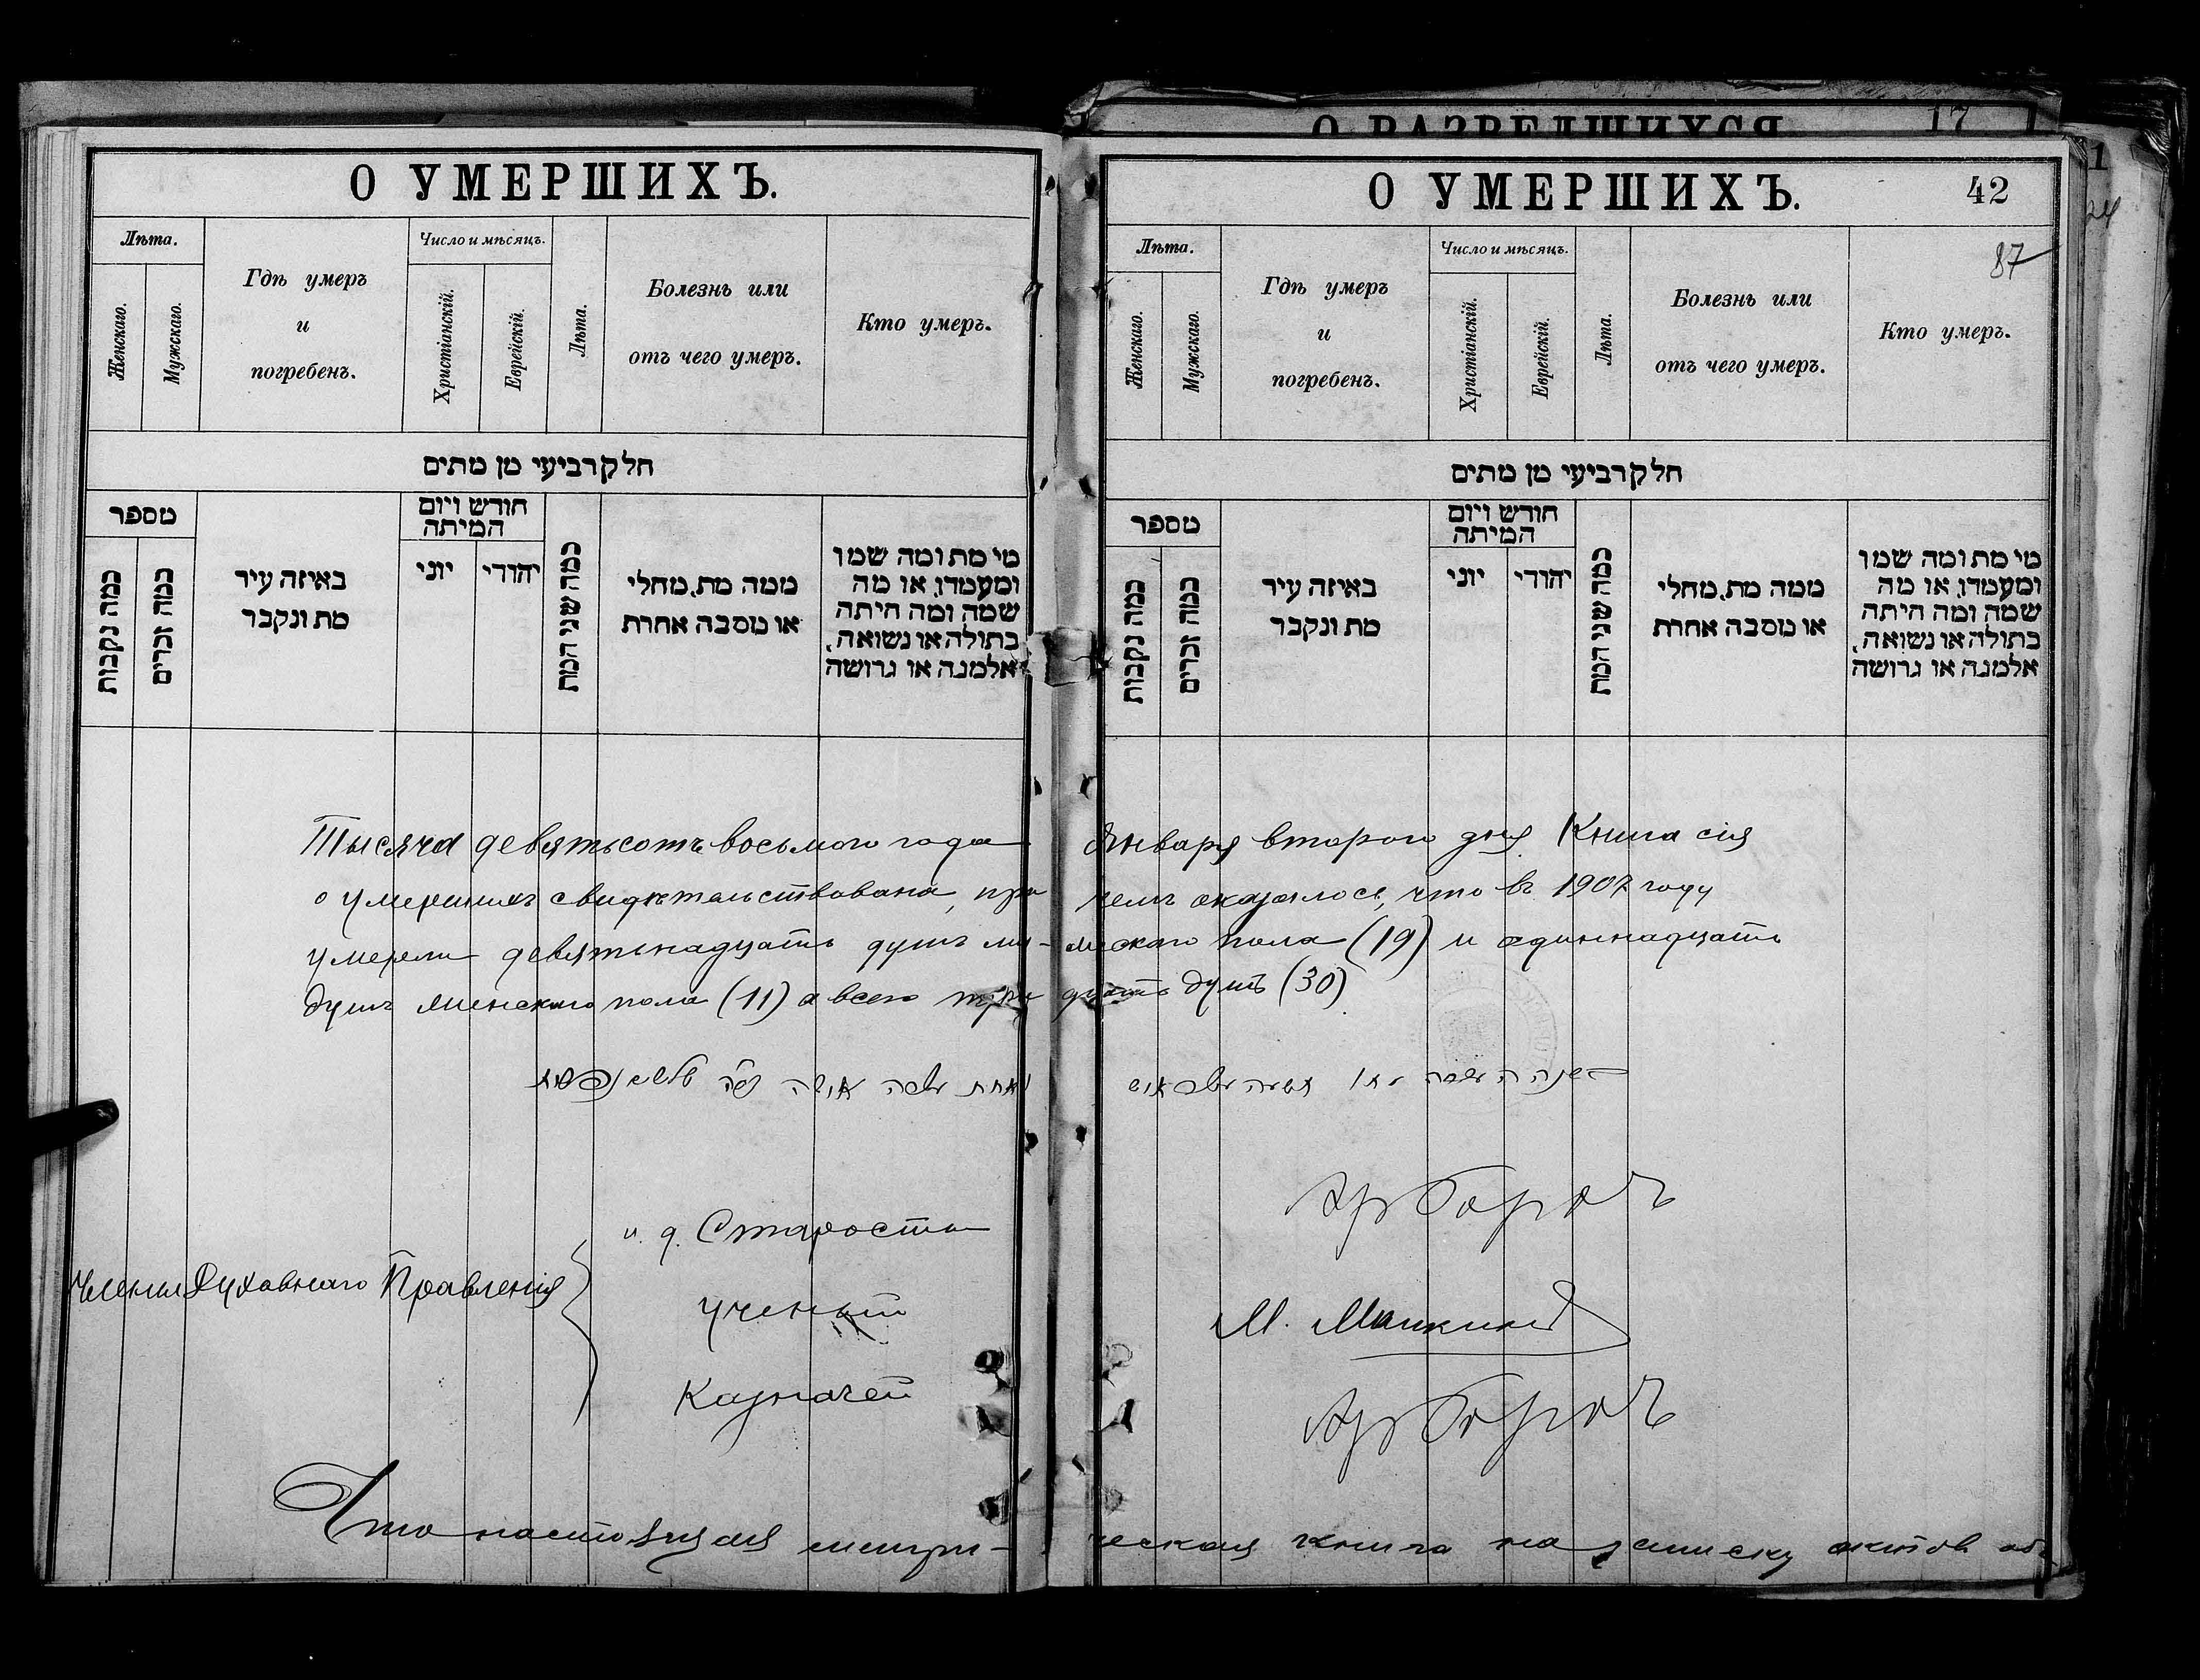 О РАЗВЕДШИХСЯ 17
О УМЕРШИХЪ.
Лѣта.
Женскаго.
Мужскаго.
Гдѣ умеръ
и
погребенъ.
Число и мѣсяцъ.
Христіанскій.
Еврейскій.
Лѣта.
Болезнь или
отъ чего умеръ.
Кто умеръ.
חלק רביעי מן מתים
מספר
כמה נקבות
כמה זכרים
באיזה עיר
מת ונקבר
חודש ויום
המיתה
יוני
יהודי
כמה שני המת
ממה מת, מחלי
או מסבה אחרת
מי מת ומה שמו
ומעמדו, או מה
שמה ומה היתה
בתולה או נשואה,
אלמנה או גרושה
О УМЕРШИХЪ. 42
87
Лѣта.
Женскаго.
Мужскаго.
Гдѣ умеръ
и
погребенъ.
Число и мѣсяцъ.
Христіанскій.
Еврейскій.
Лѣта.
Болезнь или
отъ чего умеръ.
Кто умеръ.
חלק רביעי מן מתים
מספר
כמה נקבות
כמה זכרים
באיזה עיר
מת ונקבר
חודש ויום
המיתה
יוני
יהודי
כמה שני המת
ממה מת, מחלי
או מסבה אחרת
מי מת ומה שמו
ומעמדו, או מה
שמה ומה היתה
בתולה או נשואה,
אלמנה או גרושה
Тысяча девятьсотъ восьмого года Января второго дня. Книга сія
о умершихъ свидѣтельствована, при чемъ оказалось, что въ 1907 году
умерли девятьнадцать душъ мужескаго пола (19) и одиннадцать
душъ женскаго пола (11) а всего тридцать душъ (30)
и. д. Старосты
Члены Духовнаго Правленія
Ученый
М.
Казначей
Что настоящая метрическая книга на записку актов об